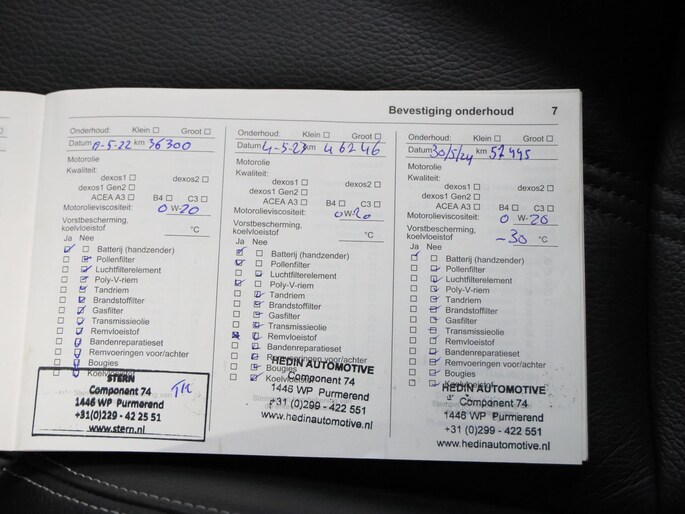 Bevestiging onderhoud 7
Onderhoud: Klein ☐ Groot ☐
Datum 11-5-22 km 36300
Motorolie
Kwaliteit:
dexos1 ☐ dexos2 ☐
dexos1 Gen2 ☐
ACEA A3 ☐ B4 ☐ C3 ☐
Motorolieviscositeit: 0 W-20
Vorstbescherming,
koelvloeistof °C
Ja Nee
Batterij (handzender)
Pollenfilter
Luchtfilterelement
Poly-V-riem
Tandriem
Brandstoffilter
Gasfilter
Transmissieolie
Remvloeistof
Bandenreparatieset
Remvoeringen voor/achter
Bougies
Koelvloeistof
STERN
Component 74
1446 WP Purmerend
+31(0)229 - 42 25 51
www.stern.nl
Onderhoud: Klein ☐ Groot ☐
Datum 4-5-23 km 46246
Motorolie
Kwaliteit:
dexos1 ☐ dexos2 ☐
dexos1 Gen2 ☐
ACEA A3 ☐ B4 ☐ C3 ☐
Motorolieviscositeit: 0 W-20
Vorstbescherming,
koelvloeistof °C
Ja Nee
Batterij (handzender)
Pollenfilter
Luchtfilterelement
Poly-V-riem
Tandriem
Brandstoffilter
Gasfilter
Transmissieolie
Remvloeistof
Bandenreparatieset
Remvoeringen voor/achter
Bougies
Koelvloeistof
HEDIN AUTOMOTIVE
Component 74
1446 WP Purmerend
+31 (0)299 - 422 551
www.hedinautomotive.nl
Onderhoud: Klein ☐ Groot ☐
Datum 30/5/24 km 57445
Motorolie
Kwaliteit:
dexos1 ☐ dexos2 ☐
dexos1 Gen2 ☐
ACEA A3 ☐ B4 ☐ C3 ☐
Motorolieviscositeit: 0 W-20
Vorstbescherming,
koelvloeistof -30 °C
Ja Nee
Batterij (handzender)
Pollenfilter
Luchtfilterelement
Poly-V-riem
Tandriem
Brandstoffilter
Gasfilter
Transmissieolie
Remvloeistof
Bandenreparatieset
Remvoeringen voor/achter
Bougies
Koelvloeistof
HEDIN AUTOMOTIVE
Component 74
1446 WP Purmerend
+31 (0)299 - 422 551
www.hedinautomotive.nl